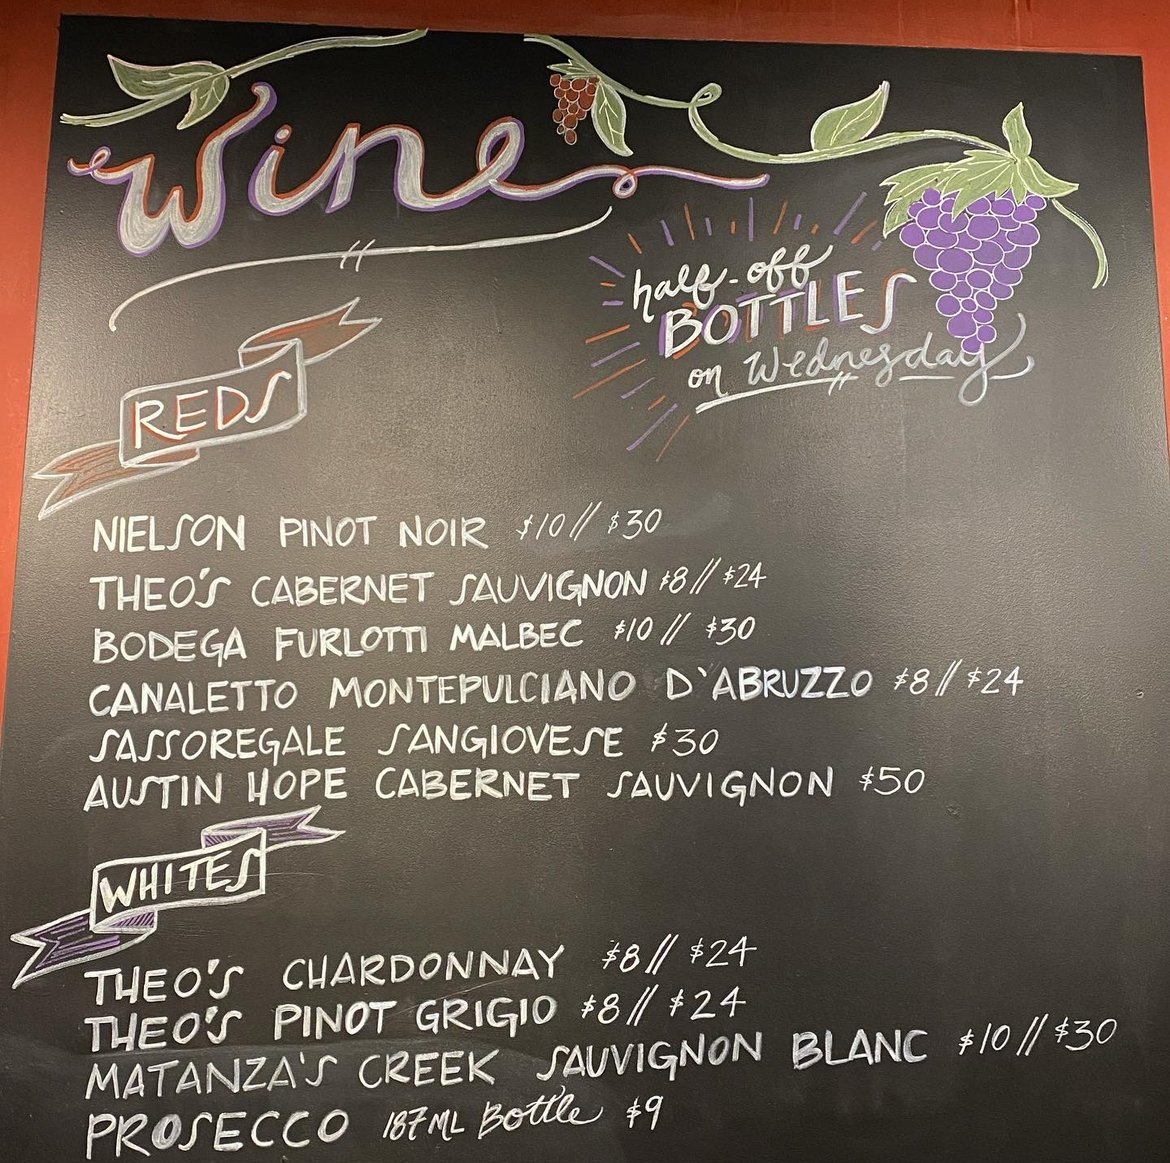 Wine
half-off
BOTTLES
on Wednesday
REDS
NIELSON PINOT NOIR $10 // $30
THEO'S CABERNET SAUVIGNON $8 // $24
BODEGA FURLOTTI MALBEC $10 // $30
CANALETTO MONTEPULCIANO D'ABRUZZO $8 // $24
SASSOREGALE SANGIOVESE $30
AUSTIN HOPE CABERNET SAUVIGNON $50
WHITES
THEO'S CHARDONNAY $8 // $24
THEO'S PINOT GRIGIO $8 // $24
MATANZA'S CREEK SAUVIGNON BLANC $10 // $30
PROSECCO 187ML Bottle $9